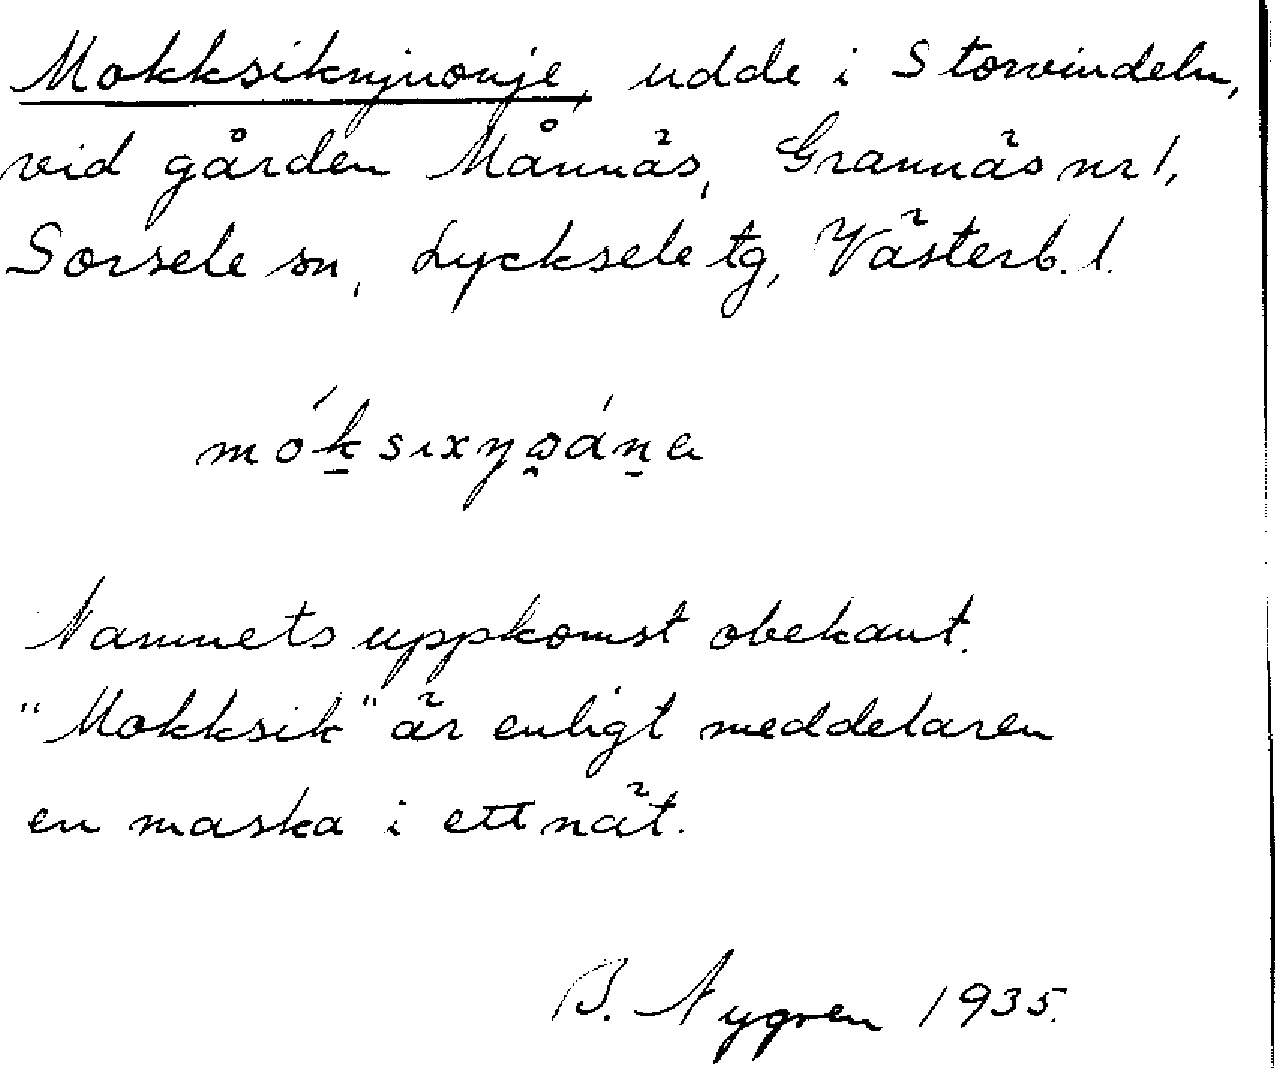 Mokksiknjuonje, udde i Storvindeln,
vid gården Månnäs, Grannäs nr 1,
Sorsele sn, Lycksele tg, Västerb. l.
Namnets uppkomst obekant.
"Mokksik" är enligt meddelaren
en maska i ett nät.
B. Nygren 1935.